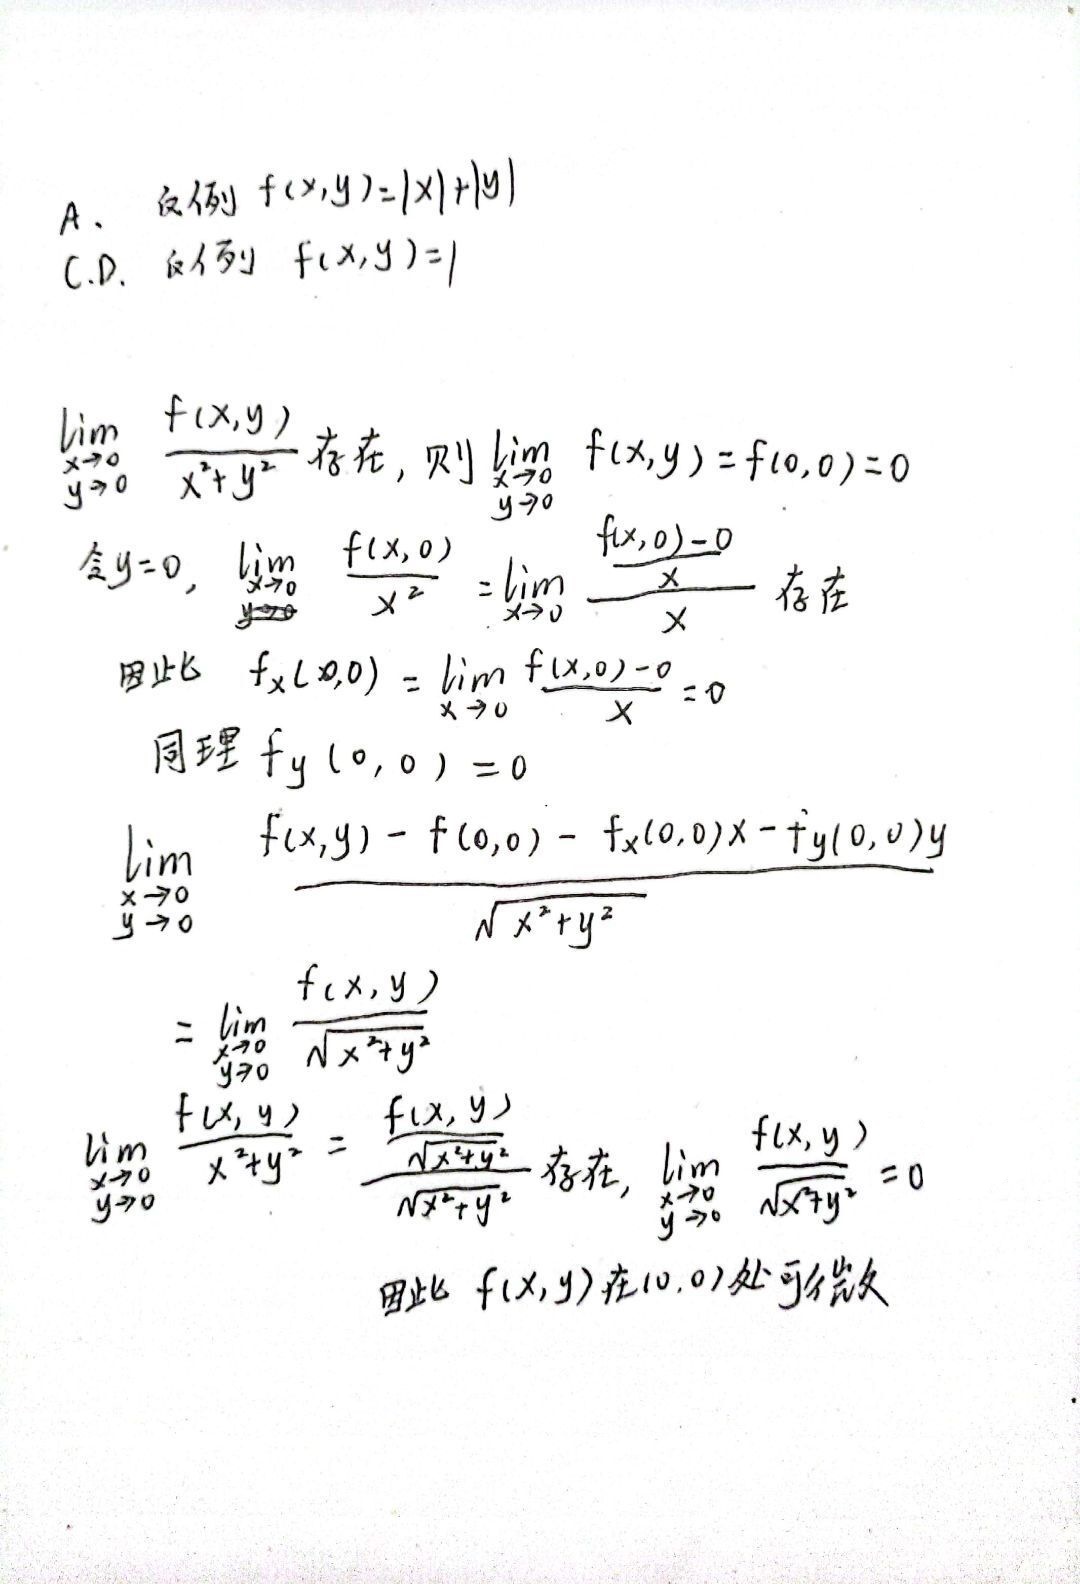 A. 反例 f(x,y)=|x|+|y|
C.D. 反例 f(x,y)=1
lim x→0 y→0 f(x,y)/(x²+y²) 存在, 则 lim x→0 y→0 f(x,y)=f(0,0)=0
令y=0, lim x→0 f(x,0)/x² = lim x→0 ((f(x,0)-0)/x)/x 存在
因此 fx(0,0) = lim x→0 (f(x,0)-0)/x =0
同理 fy(0,0)=0
lim x→0 y→0 (f(x,y)-f(0,0)-fx(0,0)x-fy(0,0)y)/√(x²+y²)
= lim x→0 y→0 f(x,y)/√(x²+y²)
lim x→0 y→0 f(x,y)/(x²+y²) = (f(x,y)/√(x²+y²))/√(x²+y²) 存在, lim x→0 y→0 f(x,y)/√(x²+y²) =0
因此 f(x,y)在(0,0)处可微